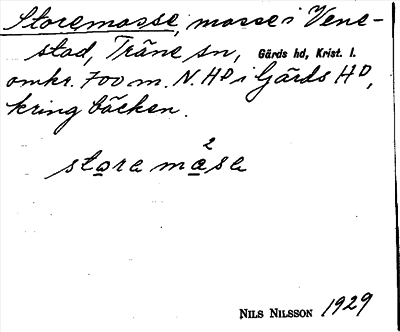 Storemosse, mosse i Vene-
stad, Träne sn, Gärds hd, Krist. l.
omkr. 700 m. N. HD i Gärds HD,
kring bäcken.
stora må²sa
NILS NILSSON 1929